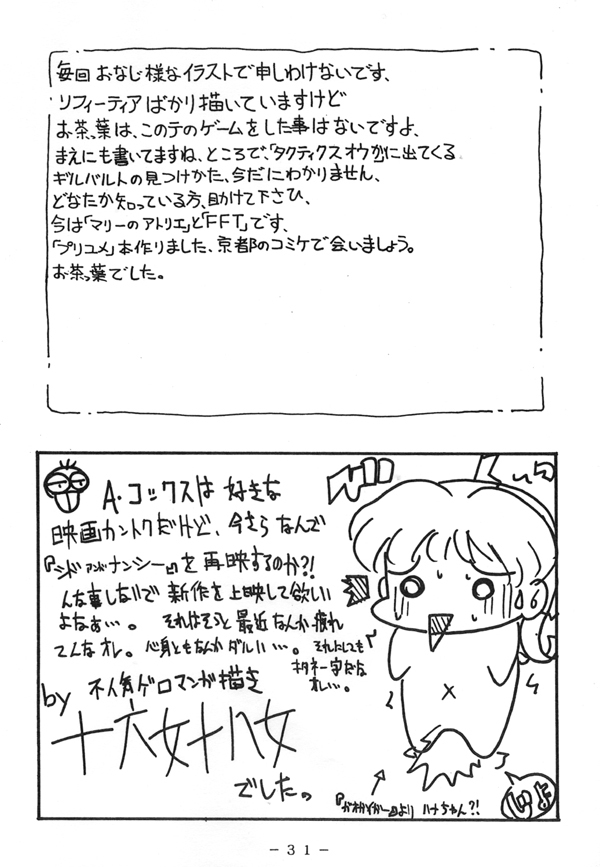 毎回おなじ様なイラストで申しわけないです、
ソフィーティアばかり描いていますけど
お茶っ葉は、このテのゲームをした事はないですよ、
まえにも書いてますね、ところで、「タクティクスオウガ」に出てくる
ギルバルトの見つけかた、今だにわかりません、
どなたか知っている方、助けて下さひ、
今は「マリーのアトリエ」と「FFT」です、
「プリユメ」本作りました、京都のコミケで会いましょう。
お茶っ葉でした。
A・コックスは好きな
映画カントクだけど、今さらなんで
『シド アンド ナンシー』を再映するのか?!
んな事しないで新作を上映して欲しい
よなぁ…。それはそうと最近なんか疲れ
てんなオレ。心身ともなんかダルい…。それにしても
ネタネー字だな
オレ…。
by 不人気ゲロマンガ描き
十六女十八女
でした。
より ハナちゃん?!
- 31 -